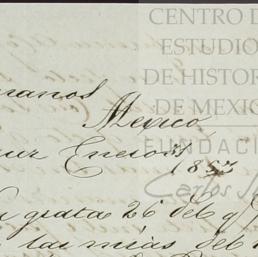 CENTRO D
ESTUDIO
DE HISTOR
DE MEXIC
FUNDACI
Carlos S
manos
Mexico
Enero
1853
grata 26 del
las mias del